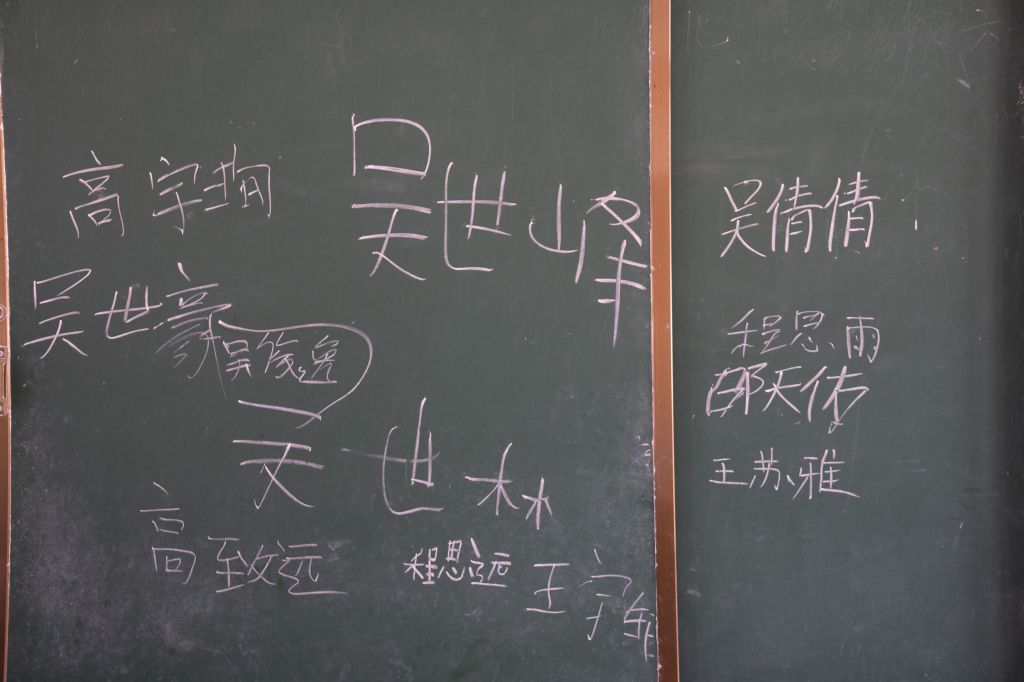 高宇翔
吴世峰
吴世豪
吴俊逸
吴世林
高致远
程思远
王宇
吴倩倩
程思雨
邵天佑
王苏雅